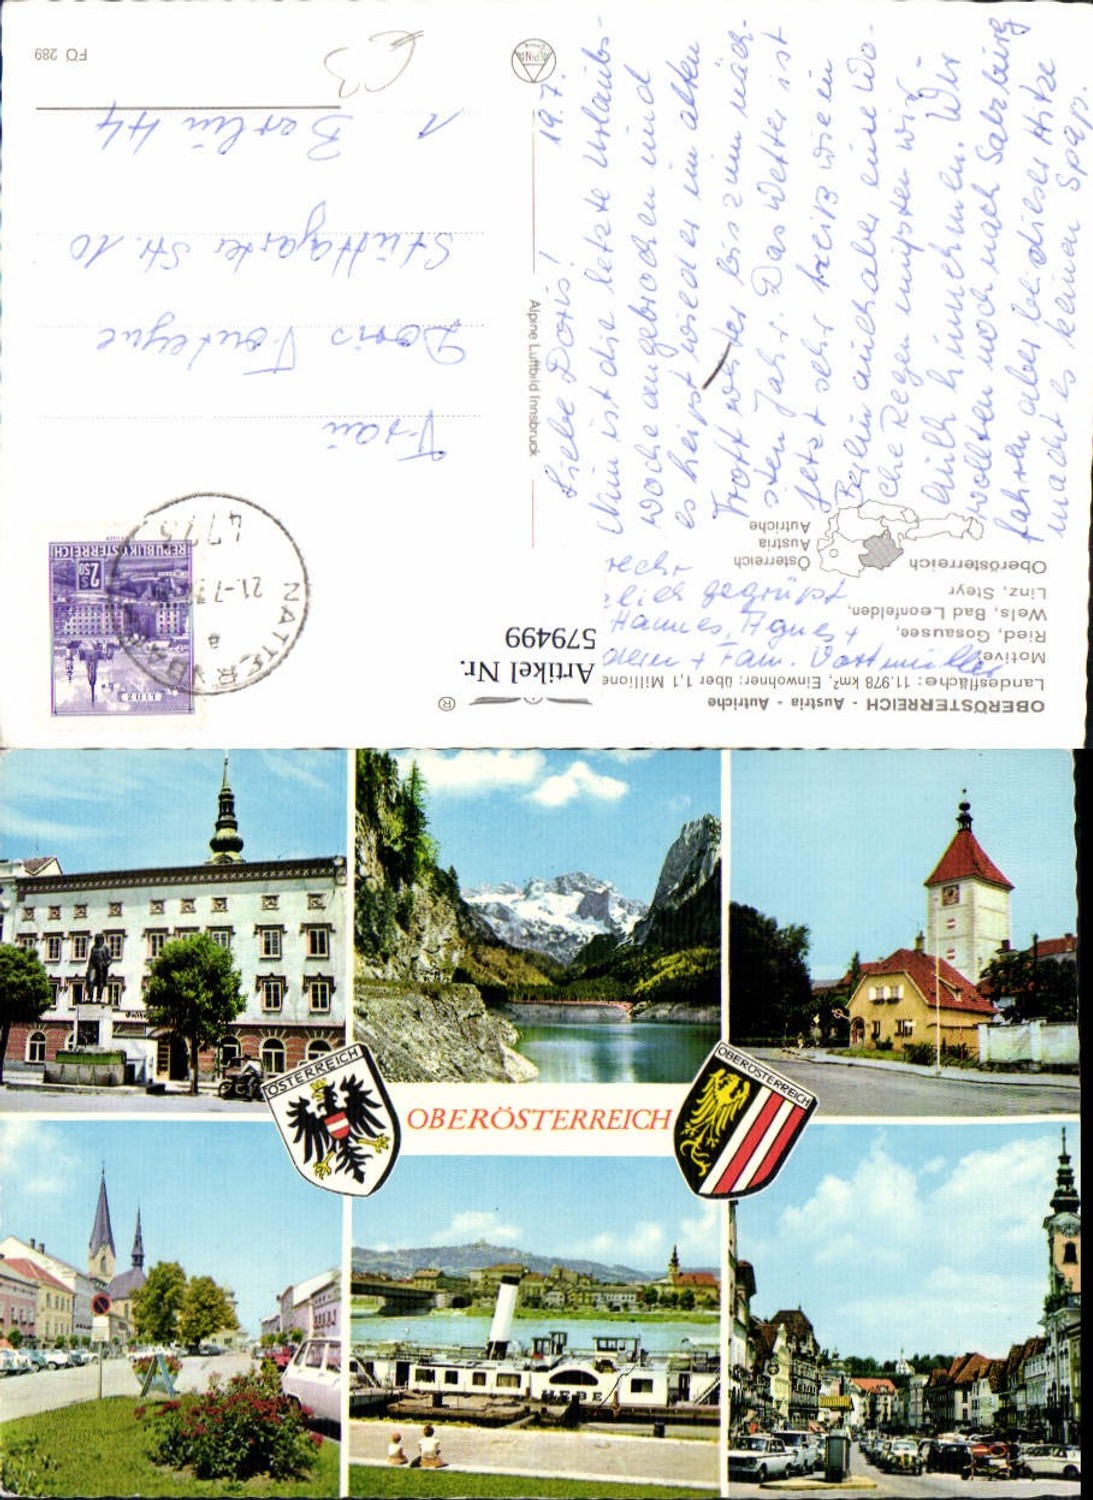 FÖ 289
19.7.
Liebe Doris!
Nun ist die letzte Urlaubs-
woche angebrochen und
es heißt wieder im alten
Trott weiter bis zum näch-
sten Jahr. Das Wetter ist
jetzt sehr heiß wie in
Berlin auch aber eine Wo-
che Regen mußten wir
auch hinnehmen. Wir
wollten noch nach Salzburg
fahren aber bei dieser Hitze
macht es keinen Spaß.
gegrüßt
Hannes, Agnes +
+ Fam.
Frau
Doris
Stuttgarter Str. 10
1 Berlin 44
Alpine Luftbild Innsbruck
REPUBLIK ÖSTERREICH
S 2.50
LINZ
21.-7.
4775
Österreich
Austria
Autriche
Oberösterreich
OBERÖSTERREICH - Austria - Autriche
Landesfläche: 11.978 km², Einwohner: über 1,1 Millione
Motive:
Ried, Gosausee,
Wels, Bad Leonfelden,
Linz, Steyr
®
Artikel Nr.
579499
ÖSTERREICH
OBERÖSTERREICH
OBERÖSTERREICH
HEBE